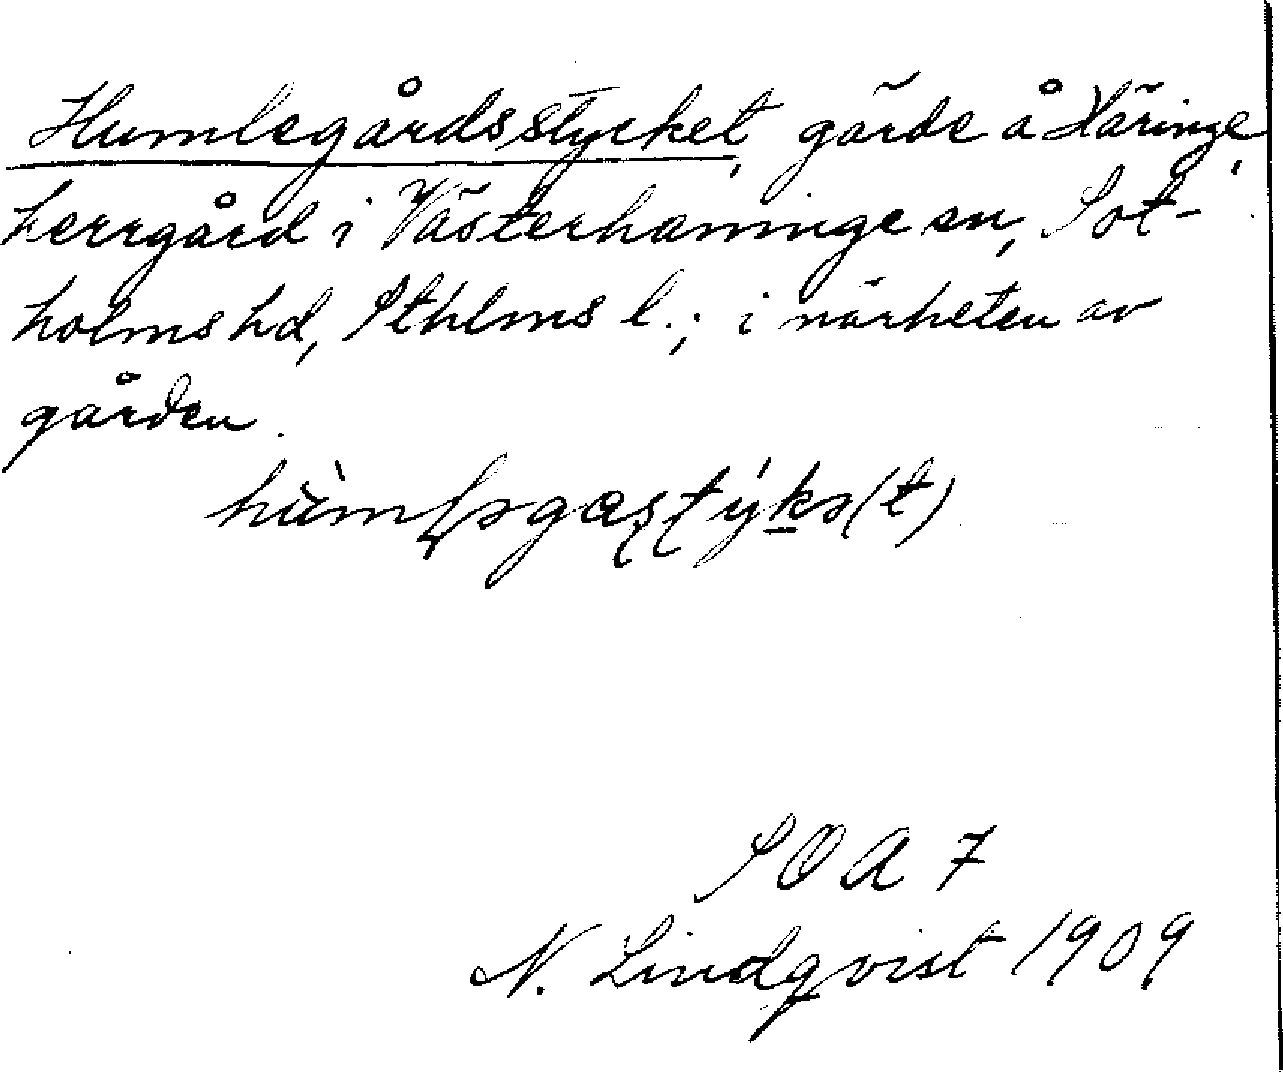 Humlegårdsstycket, gärde å Häringe
herrgård i Västerhaninge sn, Sot-
holms hd, Sthlms l.; i närheten av
gården.
SOA 7
N. Lindqvist 1909